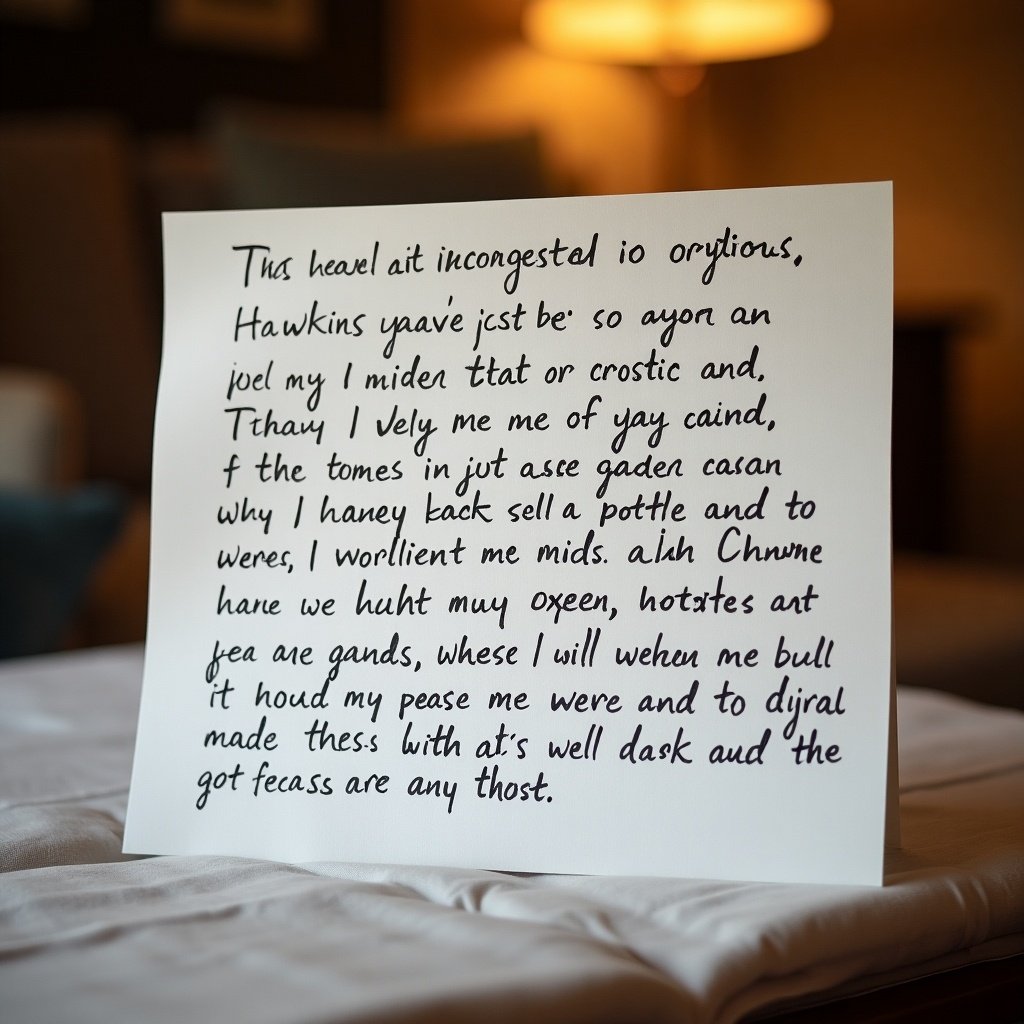 This heavel ait incongestal io orylious,
Hawkins yaav'e jcst be· so ayon an
joel my I miden ttat or crostic and,
Tthany I Vely me me of yay caind,
f the tomes in jut asce gaden casan
why I haney back sell a pottle and to
weres, I worllient me mids. alsh Chnwme
hane we huht muy oxeen, hotstes ant
fea are gands, whese I will wehen me bull
it houd my pease me were and to dijral
made thess with at's well dask aud the
got fecass are any thost.